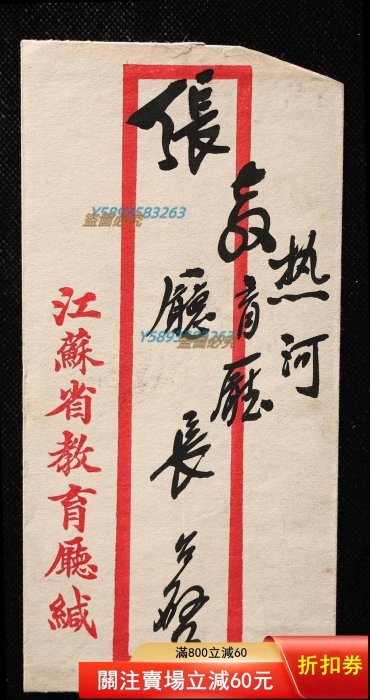 热河
教育廳
張廳長公啓
江蘇省教育廳緘
Y5893583263
盜圖必究
Y5893583263
盜圖必究
滿800立減60
關注賣場立減60元
折扣券